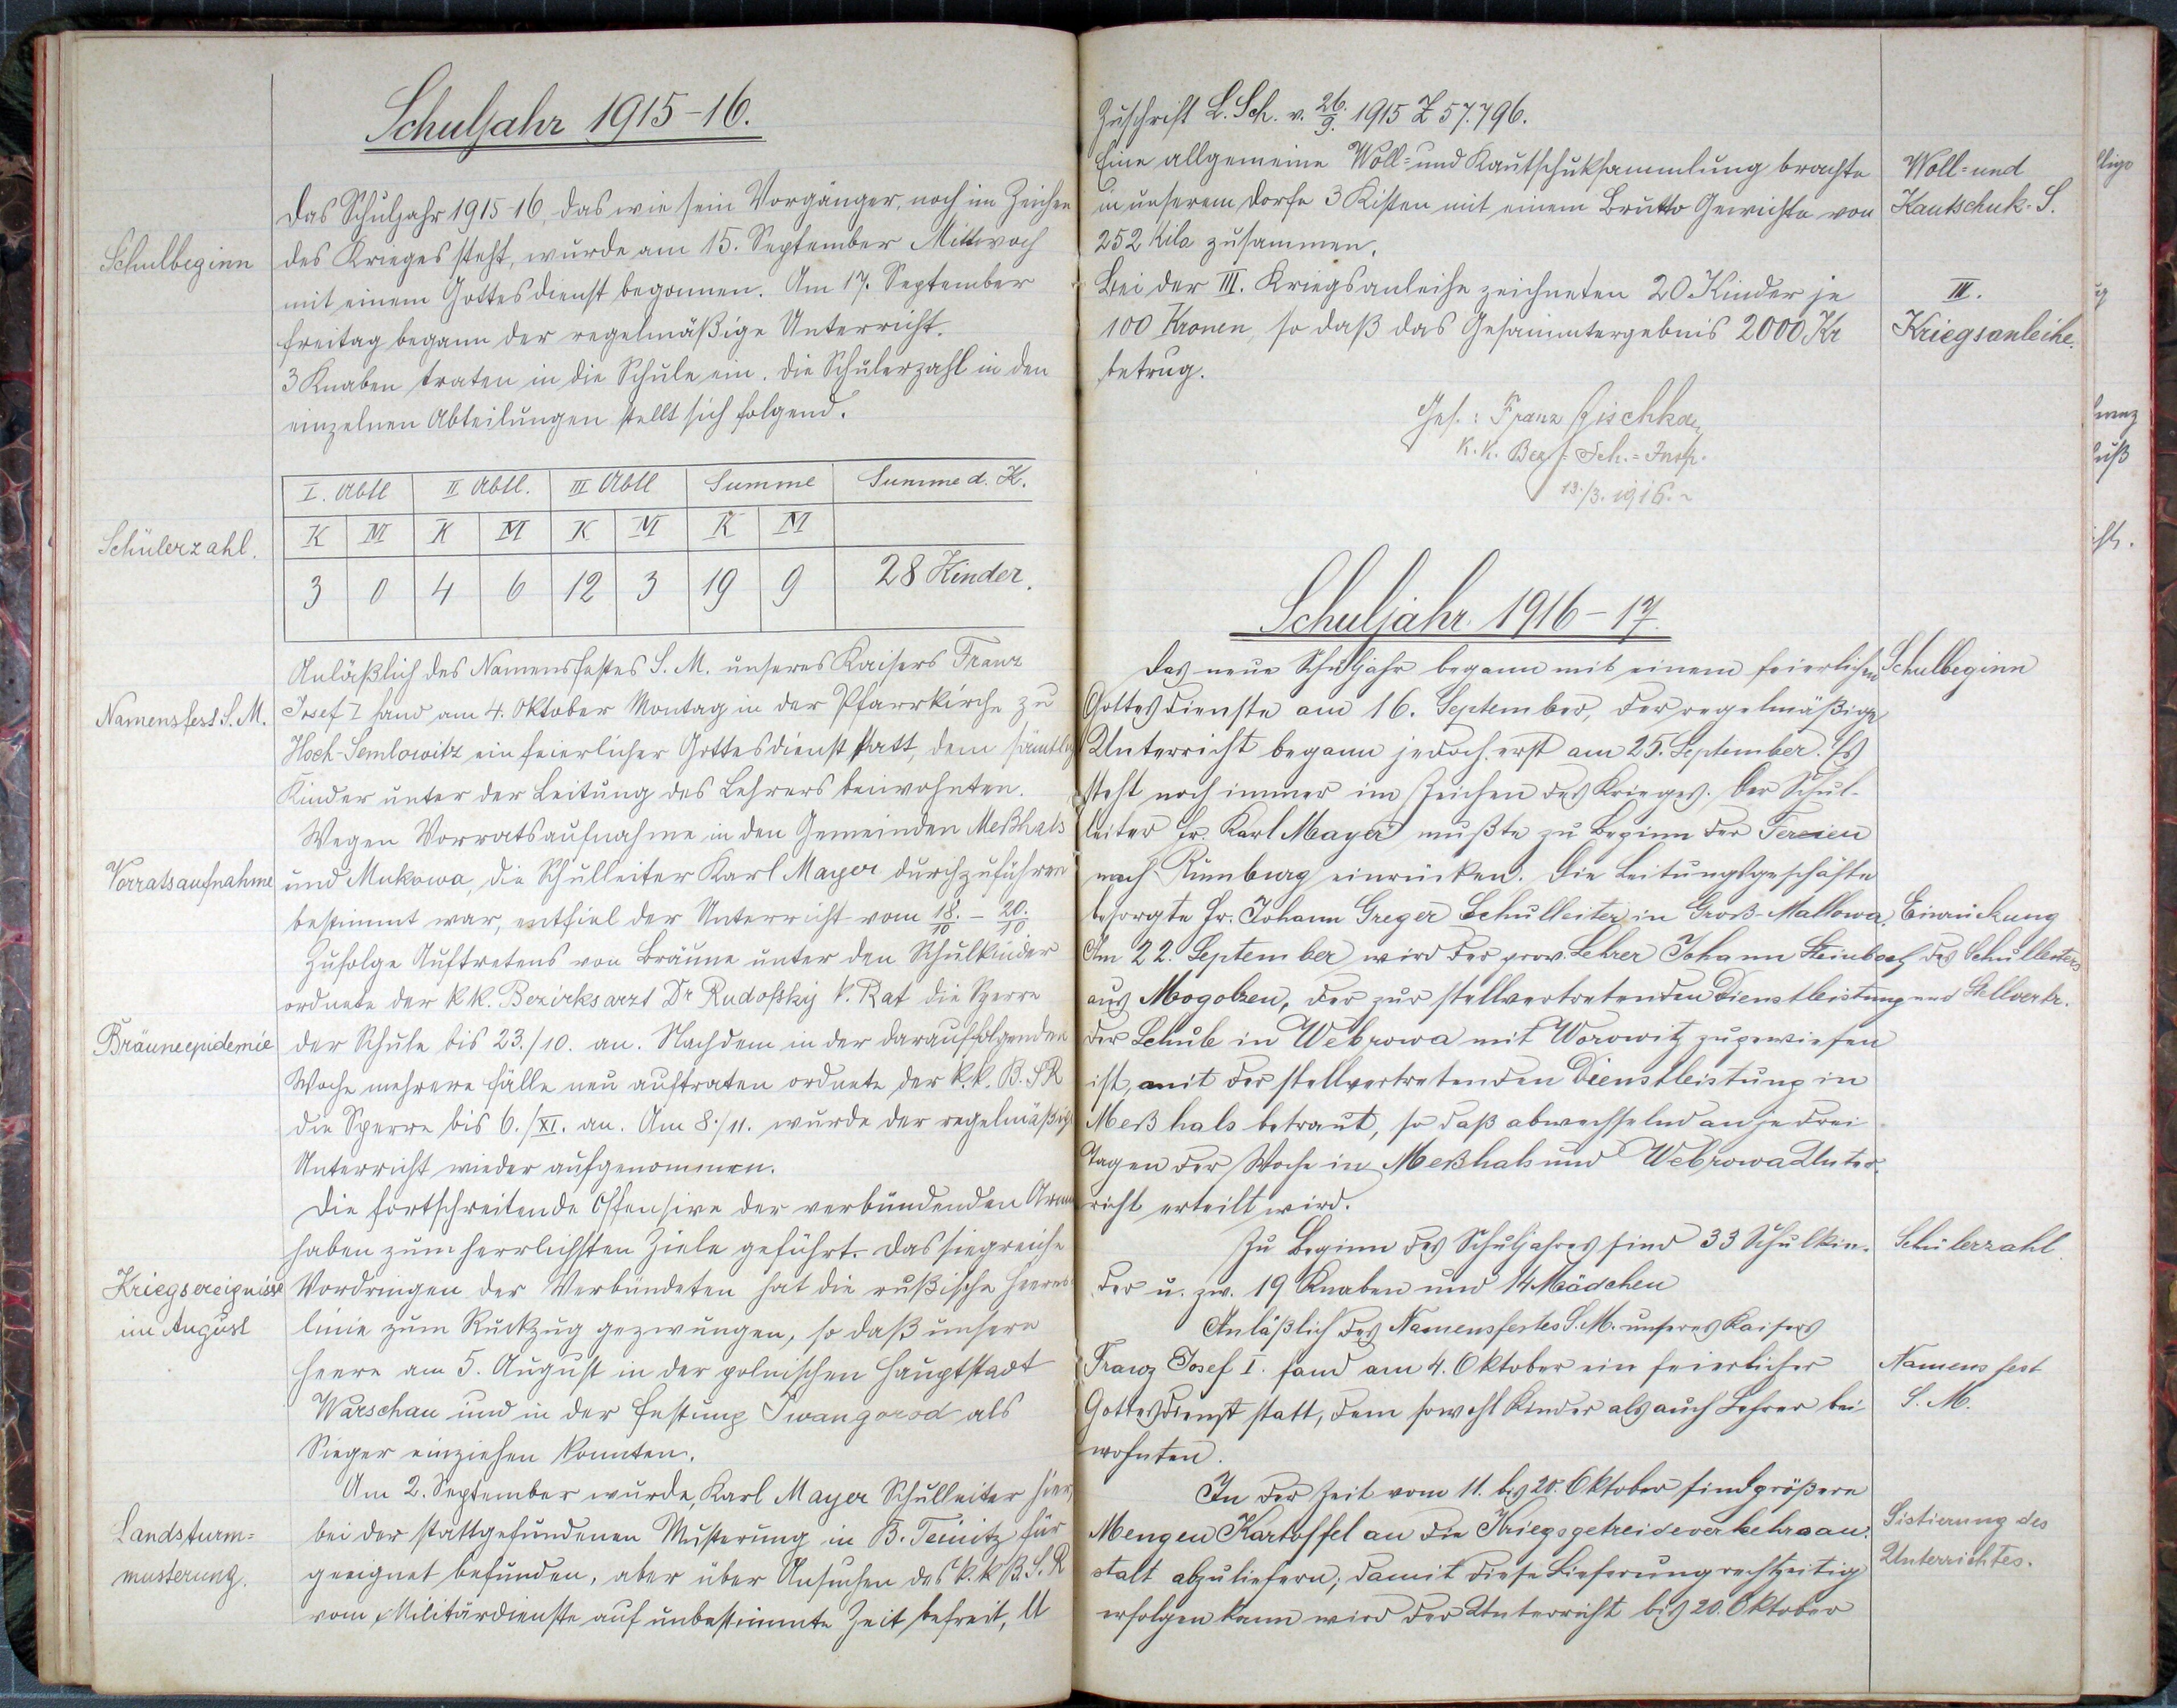 Schuljahr 1915-16.
Das Schuljahr 1915-16, das wie sein Vorgänger, noch im Zeichen
Schulbeginn
des Krieges steht, wurde am 15. September Mittwoch
mit einem Gottesdienst begonnen. Am 17. September
Freitag begann der regelmäßige Unterricht.
3 Knaben traten in die Schule ein. Die Schülerzahl in den
einzelnen Abteilungen stellt sich folgend.
I. Abtl II Abtl. III Abtl Summe Summe d. K.
Schülerzahl.
K M K M K M K M
3 0 4 6 12 3 19 9 28 Kinder.
Anläßlich des Namensfestes S. M. unseres Kaisers Franz
Namensfest S. M.
Josef I fand am 4. Oktober Montag in der Pfarrkirche zu
Hoch-Semlowitz ein feierlicher Gottesdienst statt, dem
Kinder unter der Leitung des Lehrers beiwohnten.
Wegen Vorratsaufnahme in den Gemeinden Meßhals
Vorratsaufnahme
und Mukowa, die Schulleiter Karl Mayer durchzuführen
bestimmt war, entfiel der Unterricht vom 18./10 - 20./10
Zufolge Auftretens von Bräune unter den Schulkinder
ordnete der k k. Bezirksarzt Dr Rudofsky k. Rat die Sperre
Bräuneepidemie
der Schule bis 23./10. an. Nachdem in der darauffolgenden
Woche mehrere Fälle neu auftraten ordnete der k. k. B. S R
die Sperre bis 6./XI. an. Am 8./11. wurde der regelmäßige
Unterricht wieder aufgenommen.
Die fortschreitende Offensive der verbündenden
haben zum herrlichsten Ziele geführt. Das siegreiche
Kriegsereignisse
im August
Vordringen der Verbündeten hat die rußische Heeres
linie zum Rückzug gezwungen, so daß unsere
Heere am 5. August in der polnischen Hauptstadt
Warschau und in der Festung Iwangorod als
Sieger einziehen konnten.
Am 2. September wurde, Karl Mayer Schulleiter hier,
Landsturm=
musterung.
bei der stattgefundenen Musterung in B. Teinitz für
geeignet befunden, aber über Ansuchen des k. k B. S. R
vom Militärdienste auf unbestimmte Zeit befreit, lt
Zuschrift L. Sch. v. 26./9. 1915 Z 57.796.
Eine allgemeine Woll= und Kautschuksammlung brachte
Woll= und
Kautschuk-S.
in unserem Dorfe 3 Kisten mit einem Brutto Gewichte von
252 Kilo zusammen.
Bei der III. Kriegsanleihe zeichneten 20 Kinder je
III.
Kriegsanleihe.
100 Kronen, so daß das Gesammtergebnis 2000 Kr
betrug.
Ges.: Franz
k. k. Bez.= Sch.= Insp.
13./3. 1916.
Schuljahr 1916-17.
Das neue Schuljahr begann mit einem feierlichen
Schulbeginn
Gottesdienste am 16. September, der regelmäßige
Unterricht begann jedoch erst am 25. September. Es
steht noch immer im Zeichen des Krieges. Der Schul-
leiter Hr. Karl Mayer mußte zu Beginn der Fereien
nach Rumburg einrücken. Die Leitungsgeschäfte
besorgte Hr. Johann Greger Schulleiter in Groß-Mallowa.
Einrückung
des Schulleiters
und Stellvertr.
Am 22. September wird der prov. Lehrer Johann Steinbach
aus Mogolzen, der zur stellvertretenden Dienstleistung
der Schule in Webrowa mit Worowitz zugewiesen
ist, mit der stellvertretenden Dienstleistung in
Meßhals betraut, so daß abwechselnd an je drei
Tagen der Woche in Meßhals und Webrowa Unter-
richt erteilt wird.
Zu Beginn des Schuljahres sind 33 Schulkin-
Schülerzahl.
der u. zw. 19 Knaben und 14 Mädchen
Anläßlich des Namensfestes S. M. unseres Kaisers
Franz Josef I. fand am 4. Oktober ein feierlicher
Namensfest
S. M.
Gottesdienst statt, dem sowohl Kinder als auch Lehrer bei
wohnten.
In der Zeit vom 11. bis 20. Oktober sind größere
Mengen Kartoffel an die Kriegsgetreideverkehrsan-
Sistierung des
Unterrichtes.
stalt abzuliefern; damit diese Lieferung rechtzeitig
erfolgen kann wird der Unterricht bis 20. Oktober